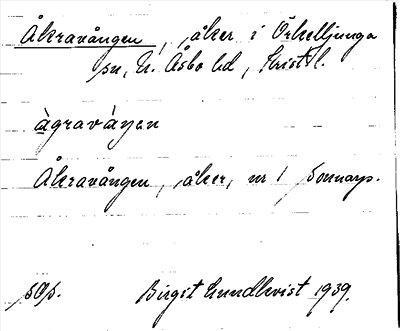 Åkravången, åker i Örkelljunga
sn, N. Åsbo hd, Krist. l.
àgravàŋen
Åkravången, åker, nr 1 Sonnarp.
Birgit Lundkvist 1939.